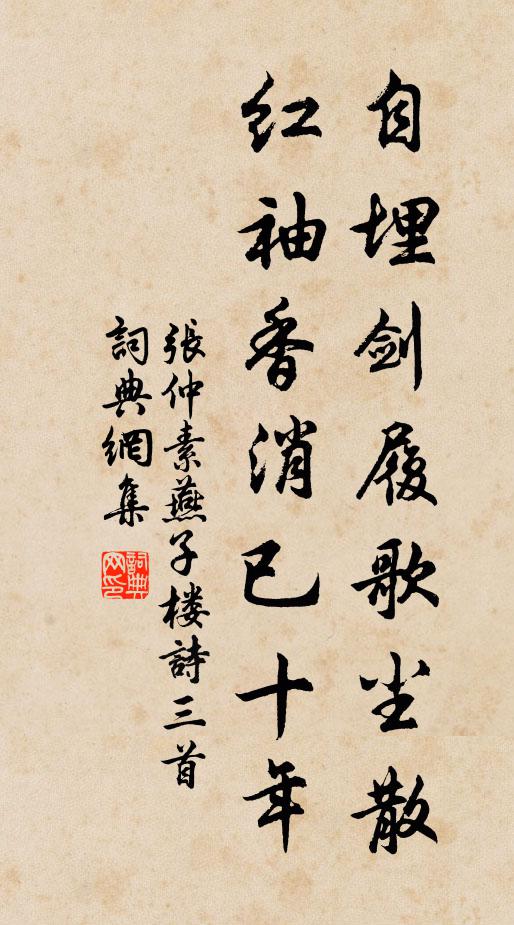 自埋剑履歌尘散
红袖香消已十年
張仲素燕子楼詩三首
詞典網集
詞典网印